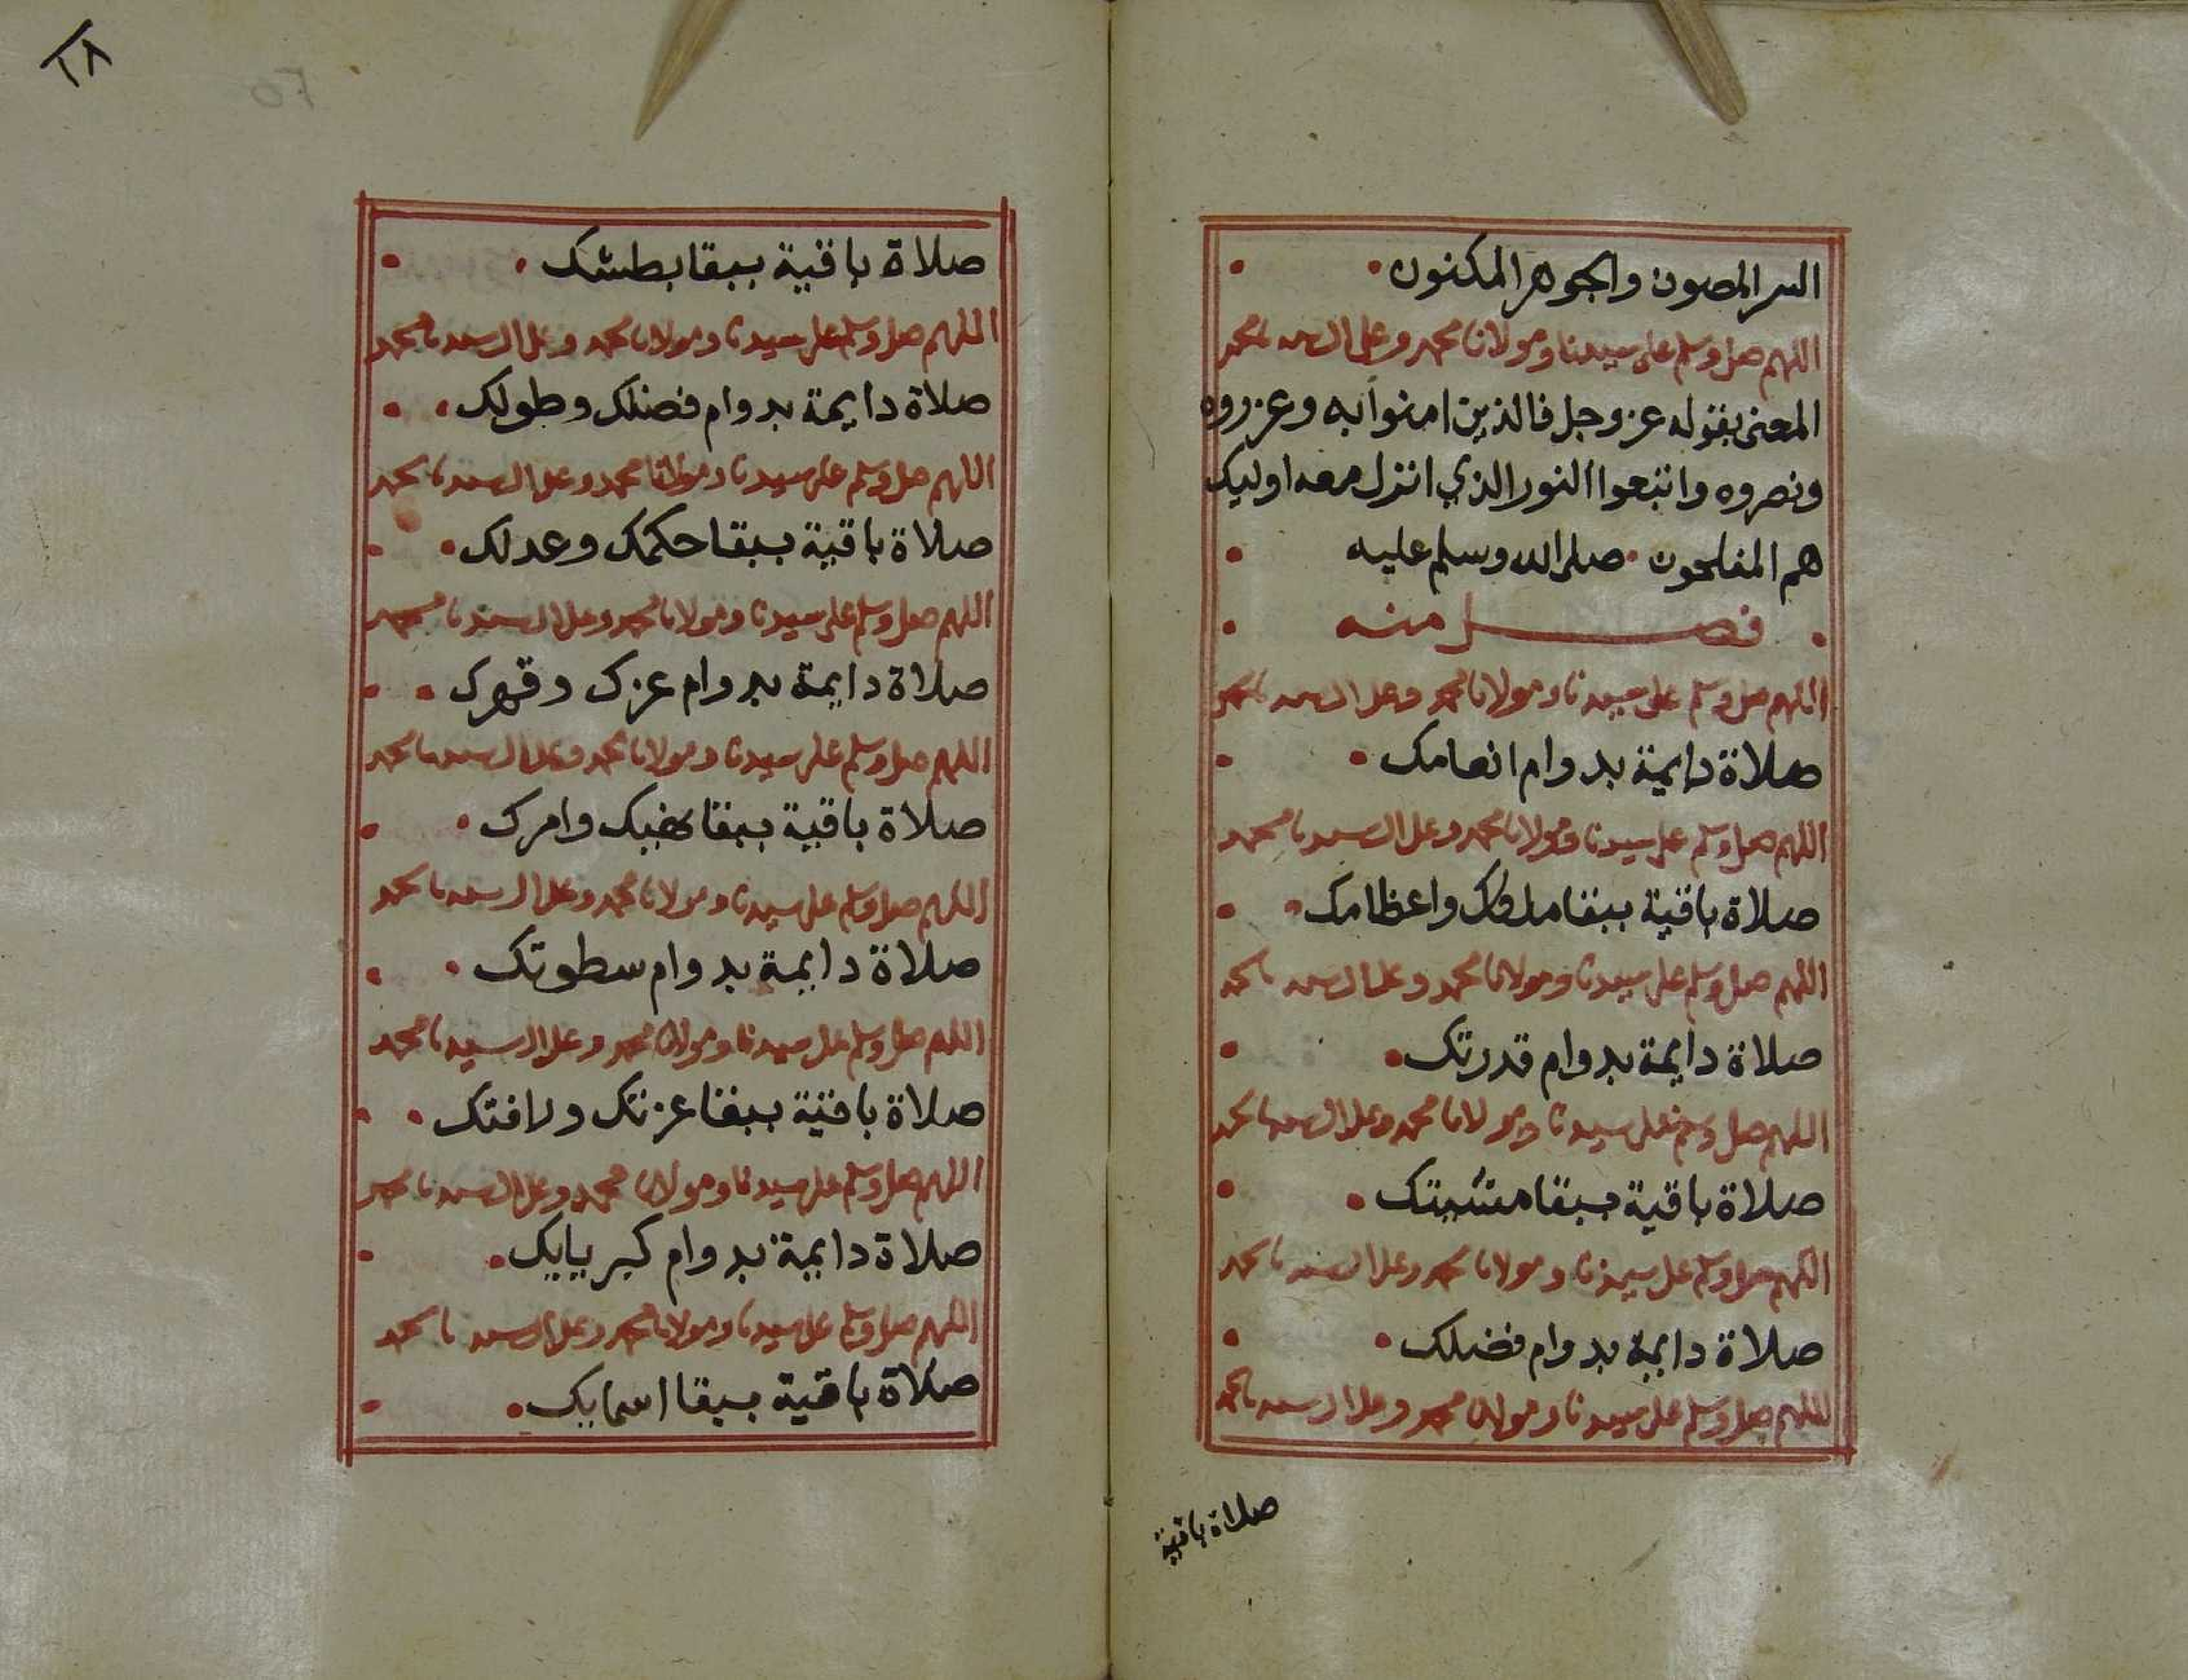 السر المصون والجوهر المكنون
اللهم صل وسلم على سيدنا ومولانا محمد وعلى ال سيدنا محمد
المعنى بقوله عز وجل فالذين امنوا به وعزروه
ونصروه واتبعوا النور الذي انزل معه اوليك
هم المفلحون صلى الله وسلم عليه
فصل منه
اللهم صل وسلم على سيدنا ومولانا محمد وعلى ال سيدنا محمد
صلاة دايمة بدوام انعامك
اللهم صل وسلم على سيدنا ومولانا محمد وعلى ال سيدنا محمد
صلاة باقية ببقا ملكك واعظامك
اللهم صل وسلم على سيدنا ومولانا محمد وعلى ال سيدنا محمد
صلاة دايمة بدوام قدرتك
اللهم صل وسلم على سيدنا ومولانا محمد وعلى ال سيدنا محمد
صلاة باقية ببقا مشيتك
اللهم صل وسلم على سيدنا ومولانا محمد وعلى ال سيدنا محمد
صلاة دايمة بدوام فضلك
اللهم صل وسلم على سيدنا ومولانا محمد وعلى ال سيدنا محمد
صلاة باقية
٢٨
صلاة باقية ببقا بطشك
اللهم صل وسلم على سيدنا ومولانا محمد وعلى ال سيدنا محمد
صلاة دايمة بدوام فضلك وطولك
اللهم صل وسلم على سيدنا ومولانا محمد وعلى ال سيدنا محمد
صلاة باقية ببقا حكمك وعدلك
اللهم صل وسلم على سيدنا ومولانا محمد وعلى ال سيدنا محمد
صلاة دايمة بدوام عزك وقهرك
اللهم صل وسلم على سيدنا ومولانا محمد وعلى ال سيدنا محمد
صلاة باقية ببقا نهيك وامرك
اللهم صل وسلم على سيدنا ومولانا محمد وعلى ال سيدنا محمد
صلاة دايمة بدوام سطوتك
اللهم صل وسلم على سيدنا ومولانا محمد وعلى ال سيدنا محمد
صلاة باقية ببقا عزتك ورافتك
اللهم صل وسلم على سيدنا ومولانا محمد وعلى ال سيدنا محمد
صلاة دايمة بدوام كبريايك
اللهم صل وسلم على سيدنا ومولانا محمد وعلى ال سيدنا محمد
صلاة باقية ببقا اسمايك